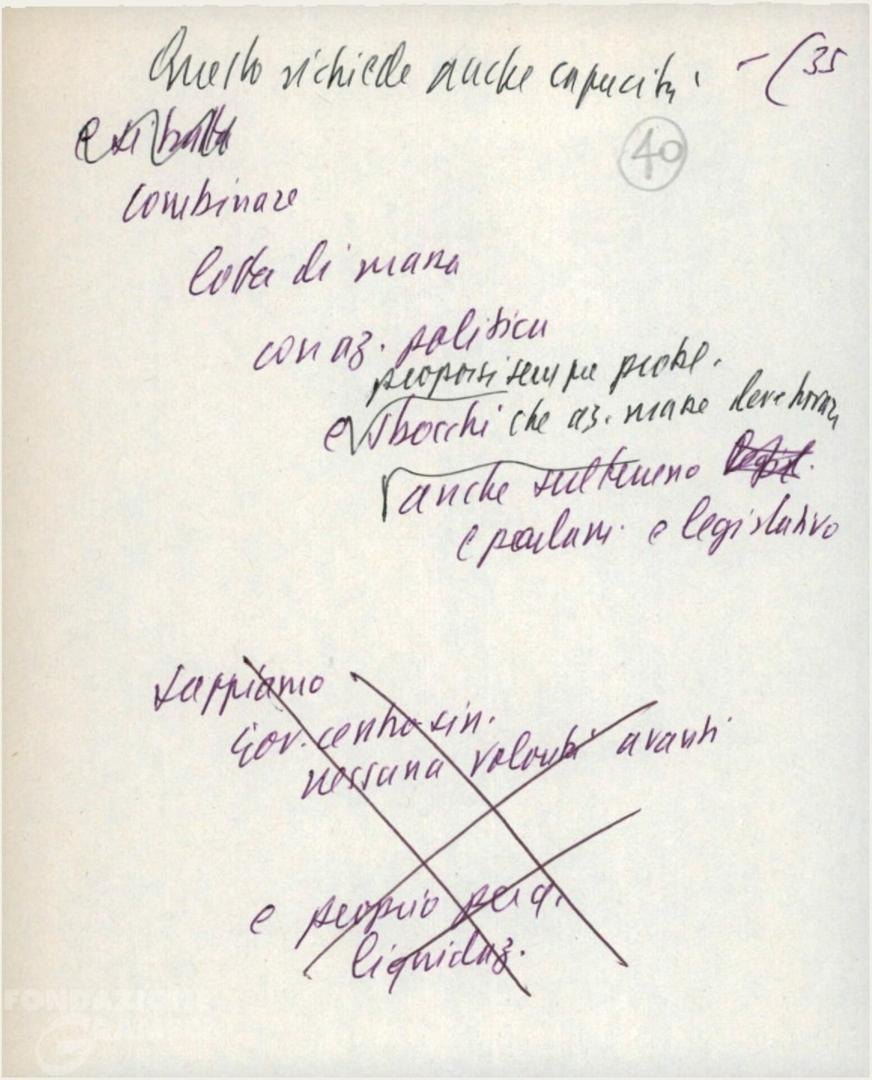 Questo richiede anche capacità – (35
e si batta
40
combinare
lotta di massa
con az. politica
proporsi sempre probl.
e sbocchi che az. masse deve trovare
anche sul terreno
e parlam. e legislativo
sappiamo
Gov. centro sin.
nessuna volontà avanti
e proprio per q.
liquidaz.
FONDAZIONE
GRAMSCI